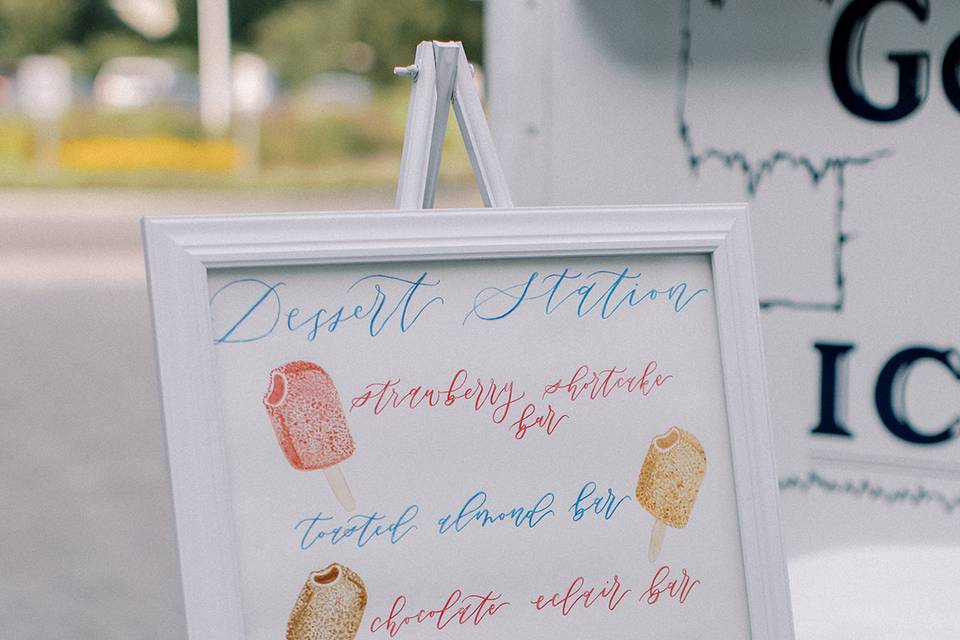 Dessert Station
strawberry shortcake
bar
toasted almond bar
chocolate eclair bar
IC